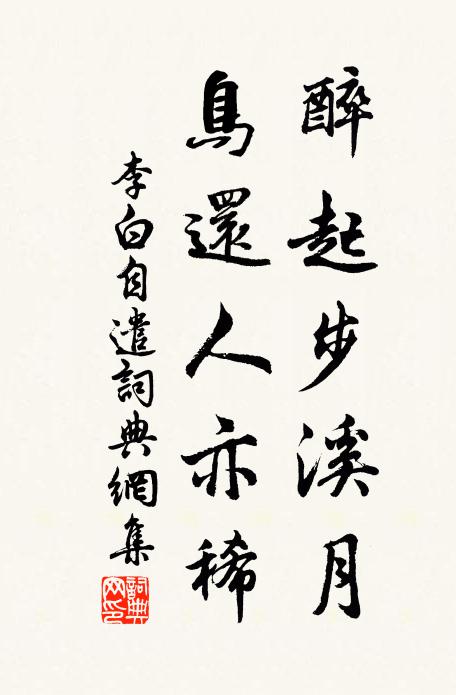 醉起步溪月
鳥還人亦稀
李白自遣詞典網集
詞典
网印